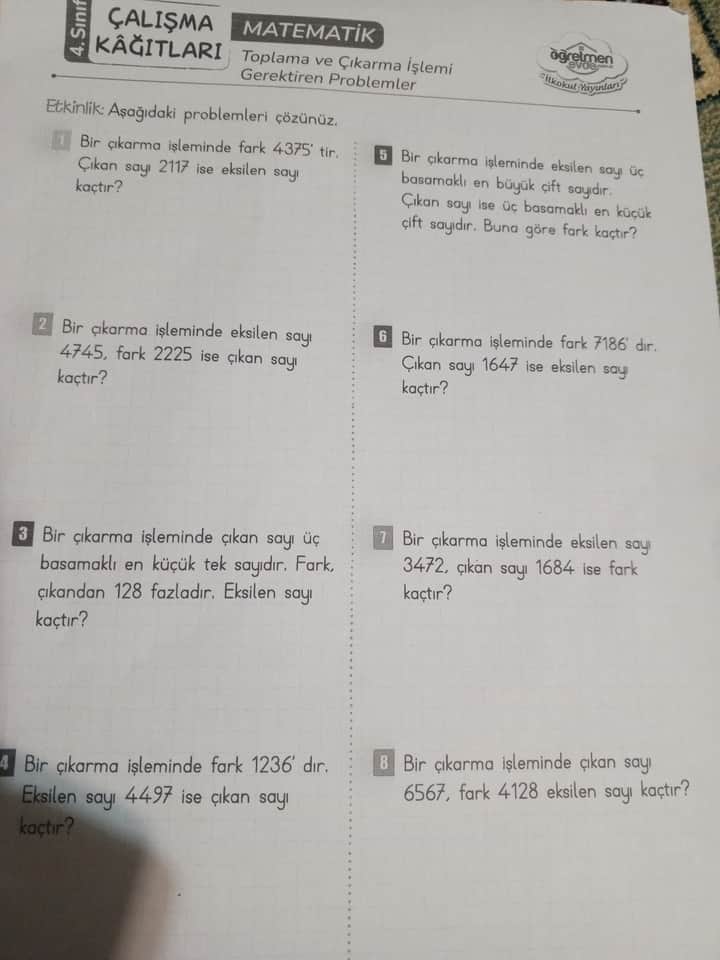 4.Sınıf
ÇALIŞMA
KÂĞITLARI
MATEMATİK
Toplama ve Çıkarma İşlemi
Gerektiren Problemler
öğretmen
evde
İlkokul Yayınları
Etkinlik: Aşağıdaki problemleri çözünüz.
1 Bir çıkarma işleminde fark 4375' tir.
Çıkan sayı 2117 ise eksilen sayı
kaçtır?
2 Bir çıkarma işleminde eksilen sayı
4745, fark 2225 ise çıkan sayı
kaçtır?
3 Bir çıkarma işleminde çıkan sayı üç
basamaklı en küçük tek sayıdır. Fark,
çıkandan 128 fazladır. Eksilen sayı
kaçtır?
4 Bir çıkarma işleminde fark 1236' dır.
Eksilen sayı 4497 ise çıkan sayı
kaçtır?
5 Bir çıkarma işleminde eksilen sayı üç
basamaklı en büyük çift sayıdır.
Çıkan sayı ise üç basamaklı en küçük
çift sayıdır. Buna göre fark kaçtır?
6 Bir çıkarma işleminde fark 7186' dır.
Çıkan sayı 1647 ise eksilen sayı
kaçtır?
7 Bir çıkarma işleminde eksilen sayı
3472, çıkan sayı 1684 ise fark
kaçtır?
8 Bir çıkarma işleminde çıkan sayı
6567, fark 4128 eksilen sayı kaçtır?